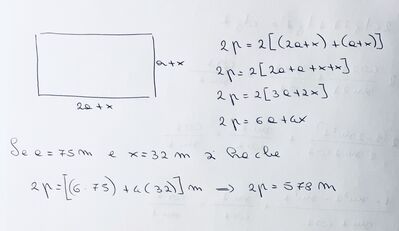 a+x
2a+x
2p = 2[(2a+x)+(a+x)]
2p = 2[2a+a+x+x]
2p = 2[3a+2x]
2p = 6a+4x
Se a = 75 m e x = 32 m si ha che
2p = [(6·75) + 4(32)] m → 2p = 578 m